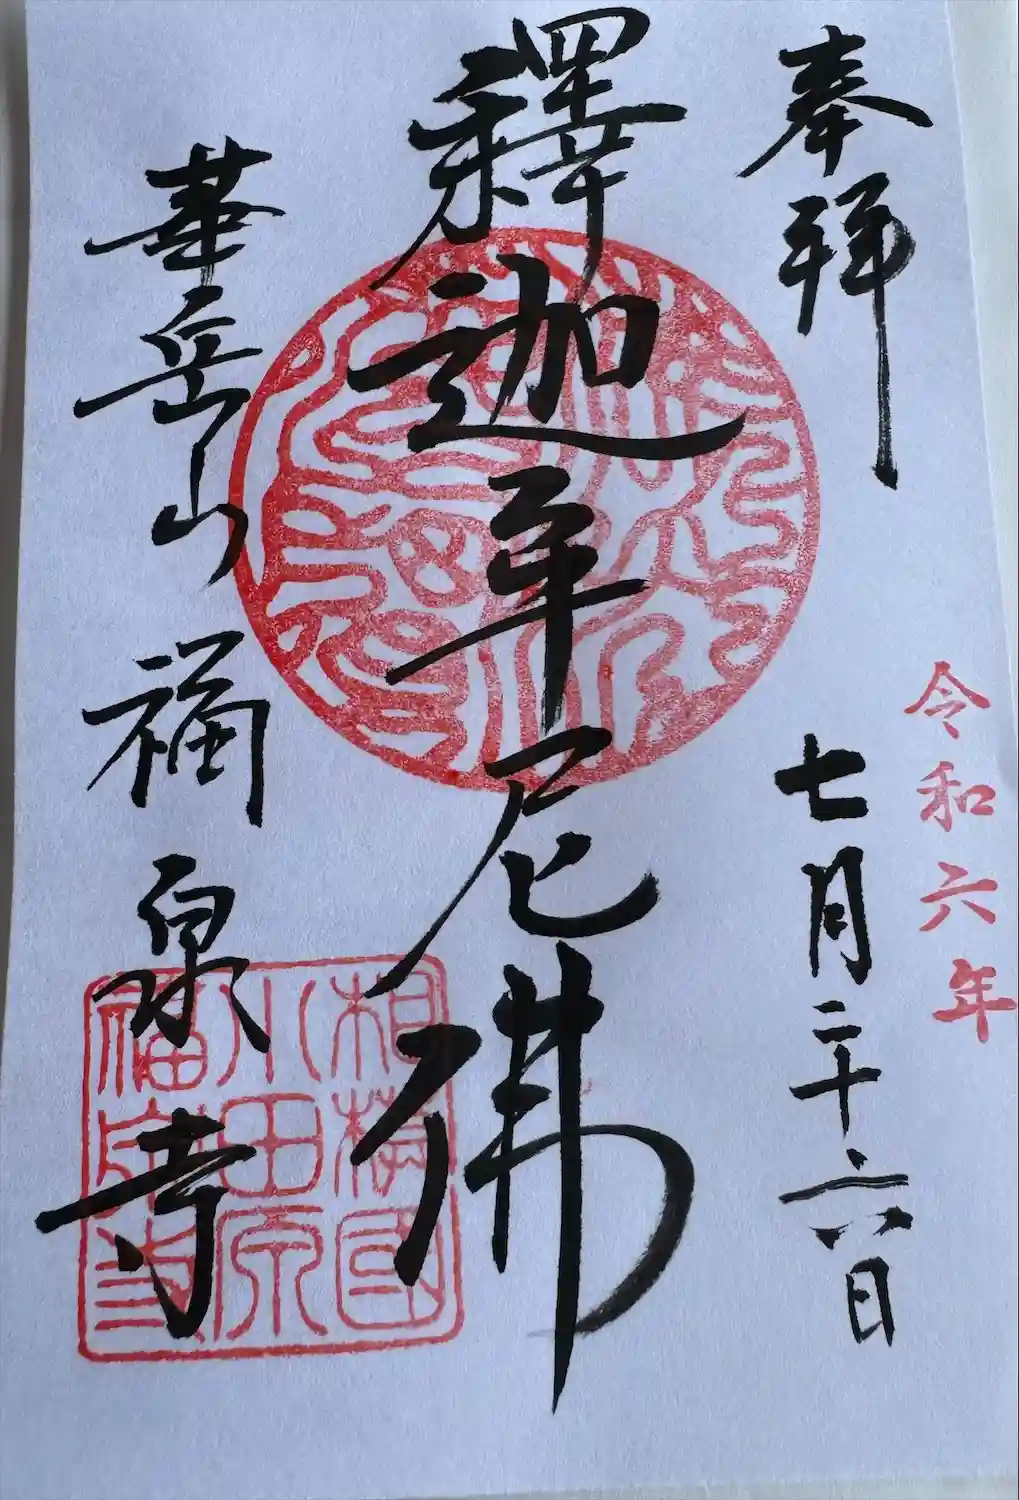 奉拝
令和六年
七月二十六日
釋迦牟尼佛
華岳山 福泉寺
相模國
小田原
福泉寺